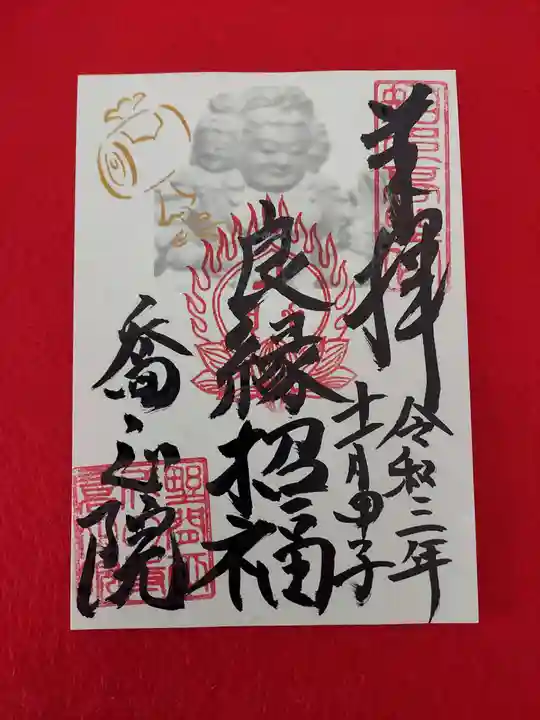 奉拝
令和三年
十一月甲子
良縁招福
喬正院